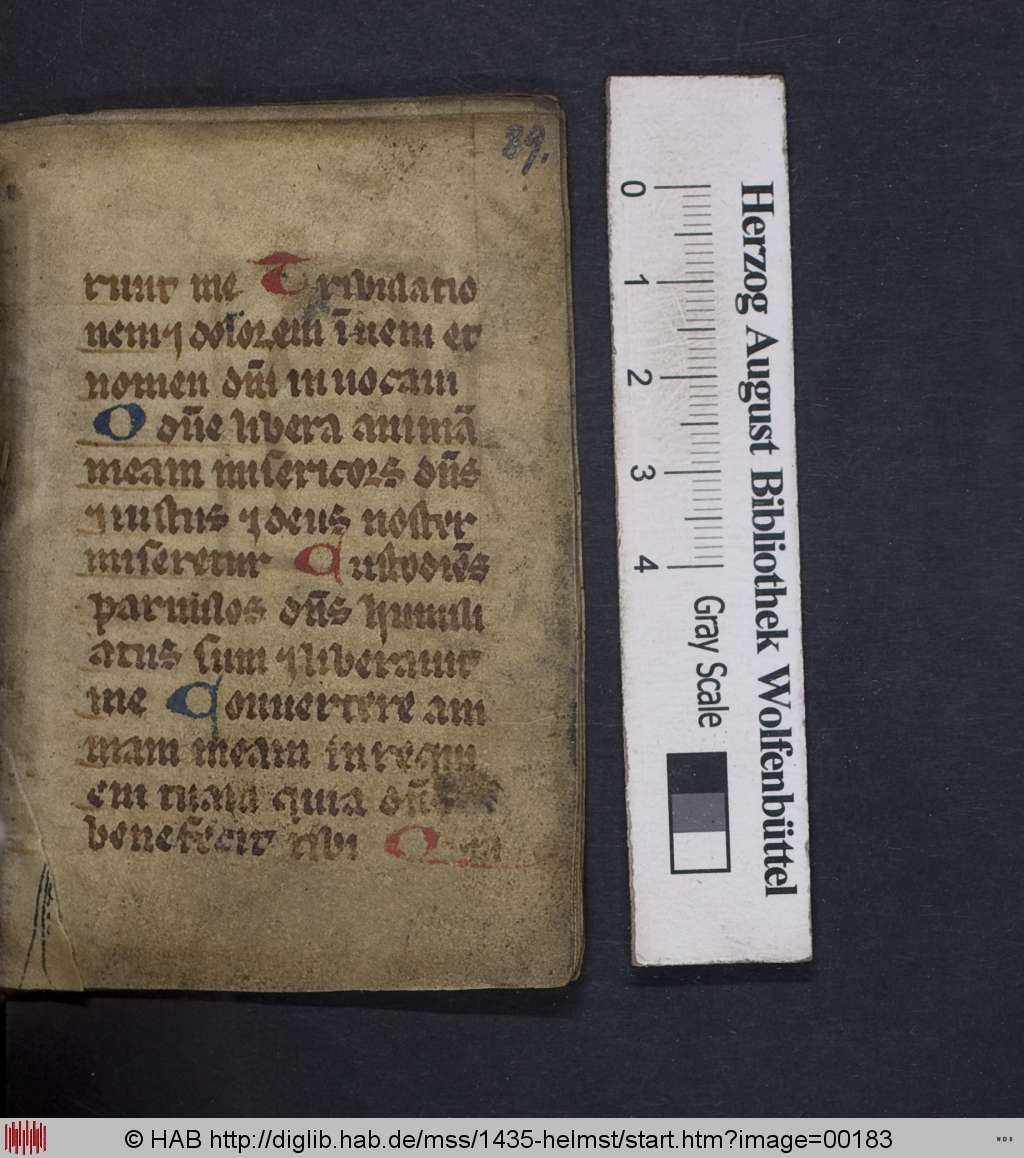 89.
runt me Tribulatio
nem ⁊ dolorem īueni et
nomen dnī inuocaui
O dn̄e libera animā
meam misericors dn̄s
⁊ iustus ⁊ deus noster
miseretur Custodiēs
paruulos dn̄s humili
atus sum ⁊ liberauit
me Conuertere ani
mam meam in requi
em tuam quia dn̄s
benefecit tibi Quia
0 1 2 3 4
Gray Scale
Herzog August Bibliothek Wolfenbüttel
© HAB http://diglib.hab.de/mss/1435-helmst/start.htm?image=00183